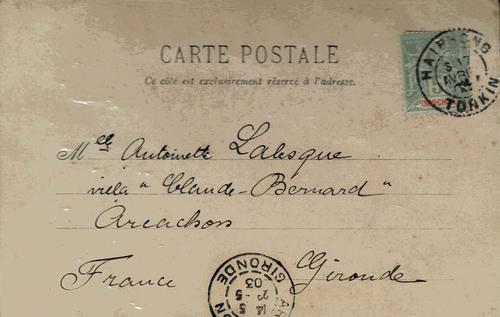 CARTE POSTALE
Ce côté est exclusivement réservé à l'adresse.
HAIPHONG
TONKIN
Melle Antoinette Labesque
villa "Claude-Bernard"
Arcachon
Gironde
France
GIRONDE
03